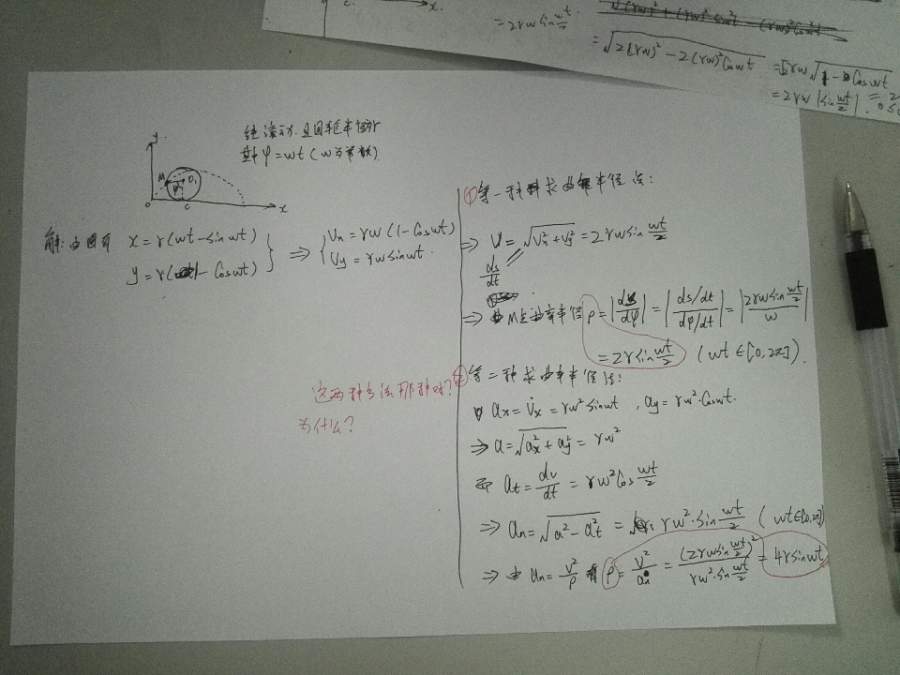 = 2rw sin wt/2
= √(2(rw)² - 2(rw)² Cos wt)
= 2rw |sin wt/2|
y
M
O₁
φ
o
C
x
纯滚动,且圆轮半径为r
其中 φ = wt (w为常数)
解: 由图有 x = r(wt - sin wt)
y = r(1 - Cos wt)
⇒ Vx = rw(1 - Cos wt)
Vy = rw sin wt
① 第一种求曲率半径法:
⇒ V = √(Vx² + Vy²) = 2rw sin wt/2
ds/dt
⇒ 由M点曲率半径 ρ = |ds/dφ| = |(ds/dt)/(dφ/dt)| = |(2rw sin wt/2)/w|
= 2r sin wt/2 (wt ∈ [0, 2π]).
② 第二种求曲率半径法:
ax = V̇x = rw² sin wt , ay = rw² · Cos wt.
⇒ a = √(ax² + ay²) = rw²
而 at = dv/dt = rw² Cos wt/2
⇒ an = √(a² - at²) = rw² · sin wt/2 (wt ∈ [0, 2π])
⇒ 由 an = V²/ρ 有 ρ = V²/an = (2rw sin wt/2)²/(rw² · sin wt/2) = 4r sin wt
这两种方法那种对?
为什么?